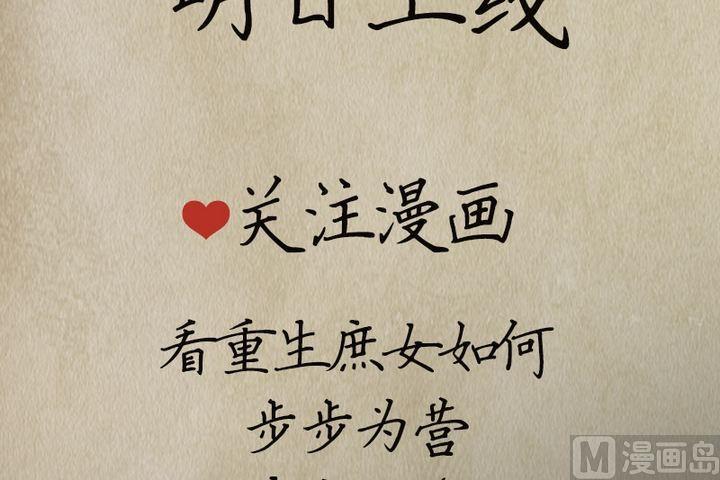 明日上线
关注漫画
看重生庶女如何
步步为营
M漫画岛